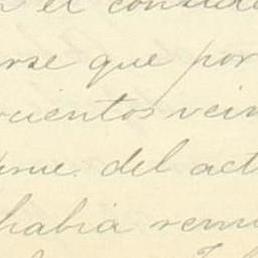 el conside
rse que por
cientos vein
del act
habia remi